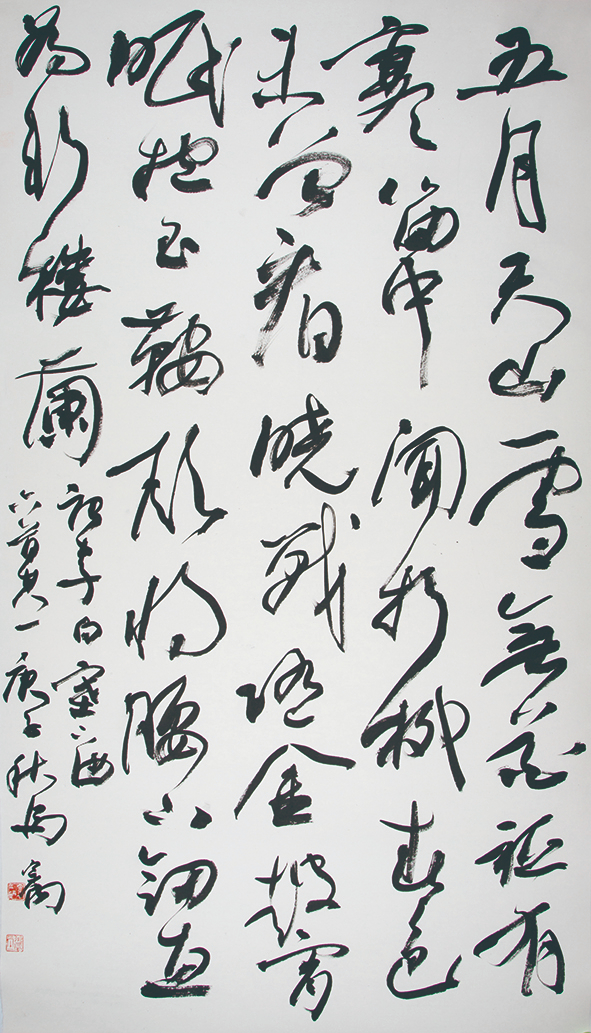 五月天山雪無花祇有
寒笛中聞折柳春色
未曾看曉戰隨金鼓宵
眠抱玉鞍願將腰下劍直
為斬樓蘭
李白塞下曲
六首其一庚子秋